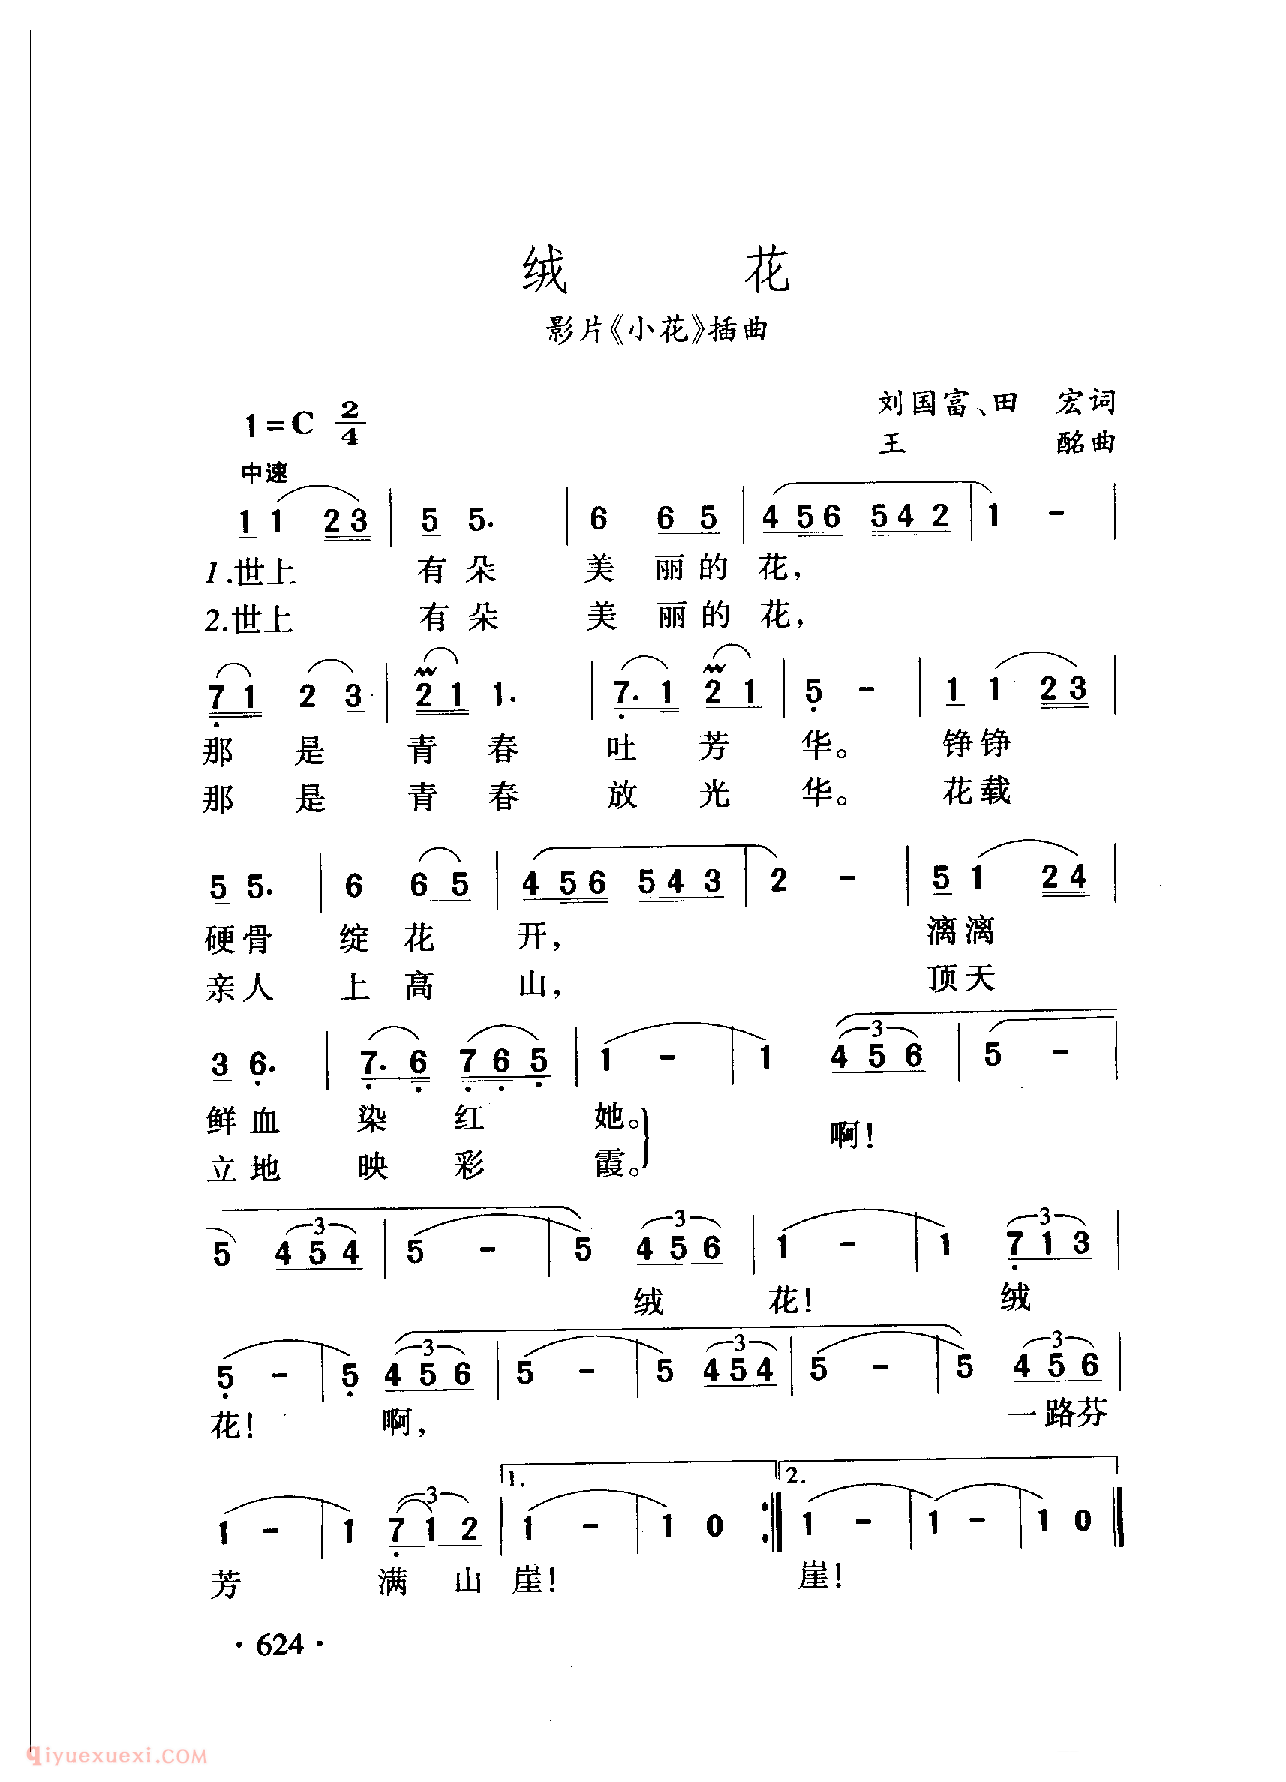 绒 花
影片《小花》插曲
1=C 2/4
刘国富、田 宏词
王 酩曲
中速
1 1 2 3 | 5 5. | 6 6 5 | 4 5 6 5 4 2 | 1 - |
1.世上 有朵 美 丽的 花，
2.世上 有朵 美 丽的 花，
7 1 2 3 | 2 1 1. | 7. 1 2 1 | 5 - | 1 1 2 3 |
那 是 青 春 吐 芳 华。 铮铮
那 是 青 春 放 光 华。 花载
5 5. | 6 6 5 | 4 5 6 5 4 3 | 2 - | 5 1 2 4 |
硬骨 绽 花 开， 漓漓
亲人 上 高 山， 顶天
3 6. | 7. 6 7 6 5 | 1 - | 1 4 5 6 | 5 - |
鲜血 染 红 她。 啊！
立地 映 彩 霞。
5 4 5 4 | 5 - | 5 4 5 6 | 1 - | 1 7 1 3 |
绒 花！ 绒
5 - | 5 4 5 6 | 5 - | 5 4 5 4 | 5 - | 5 4 5 6 |
花！ 啊， 一路芬
1 - | 1 7 1 2 | 1. 1 - | 1 0 :| 2. 1 - | 1 - | 1 0 ||
芳 满 山 崖！ 崖！
·624·
qiyuexuexi.COM